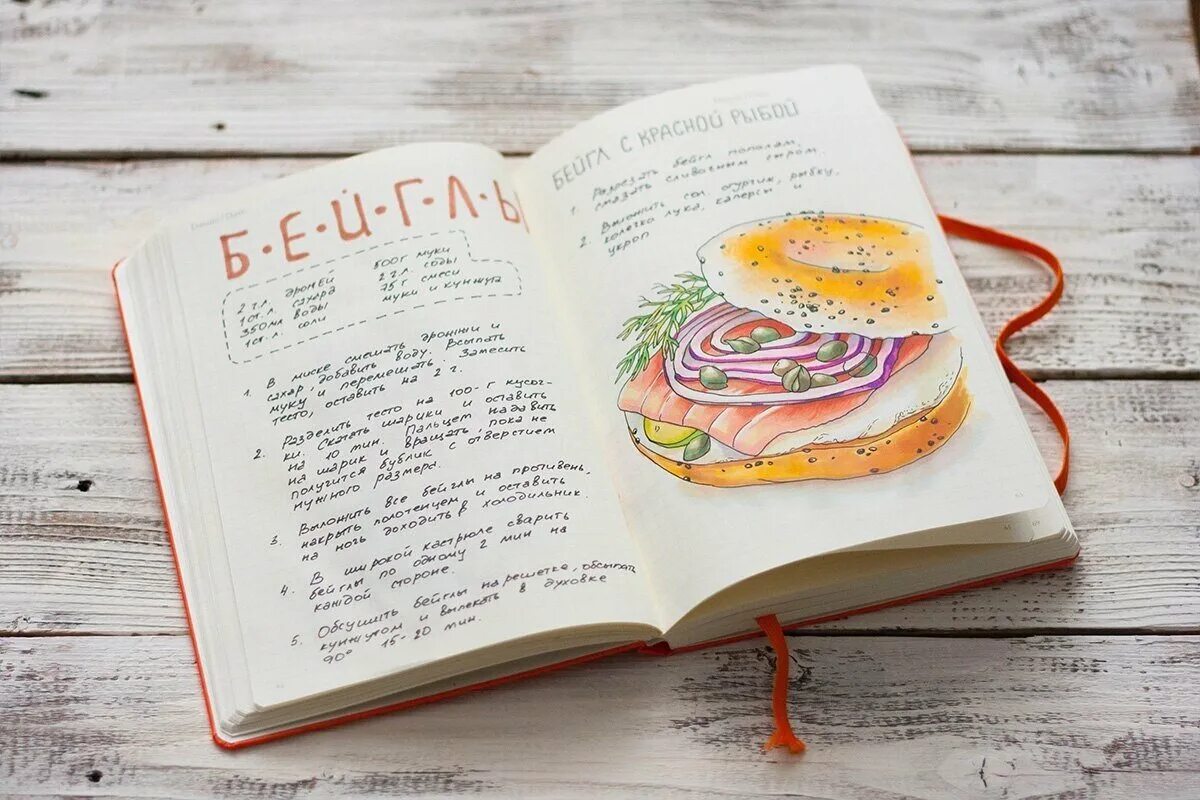 Б·Е·Й·Г·Л·Ы
2 ч.л. дрожжей
1 ст.л. сахара
350мл воды
1 ст.л. соли
500г муки
2 ч.л. соды
25 г смеси
муки и кунжута
1. В миске смешать дрожжи и
сахар, добавить воду. Всыпать
муку и перемешать. Замесить
тесто, оставить на 2 г.
2. Разделить тесто на 100-г кусоч-
ки. Скатать шарики и оставить
на 10 мин. Пальцем надавить
на шарик и вращать, пока не
получится бублик с отверстием
нужного размера.
3. Выложить все бейглы на противень,
накрыть полотенцем и оставить
на ночь доходить в холодильник.
4. В широкой кастрюле сварить
бейглы по одному 2 мин на
каждой стороне.
5. Обсушить бейглы на решетке, обсыпать
кунжутом и выпекать в духовке
90° 15-20 мин.
БЕЙГЛ С КРАСНОЙ РЫБОЙ
1. Разрезать бейгл пополам,
смазать сливочным сыром.
2. Выложить сол. огурчик, рыбку,
колечко лука, каперсы и
укроп